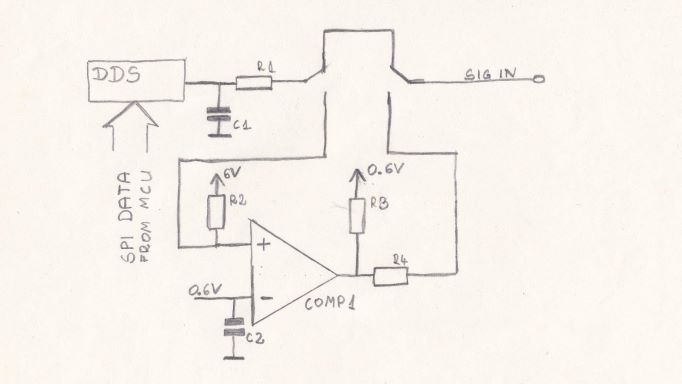 DDS
R1
SIG IN
C1
SPI DATA
FROM MCU
6V
R2
0.6V
R3
+
R4
0.6V
-
COMP1
C2